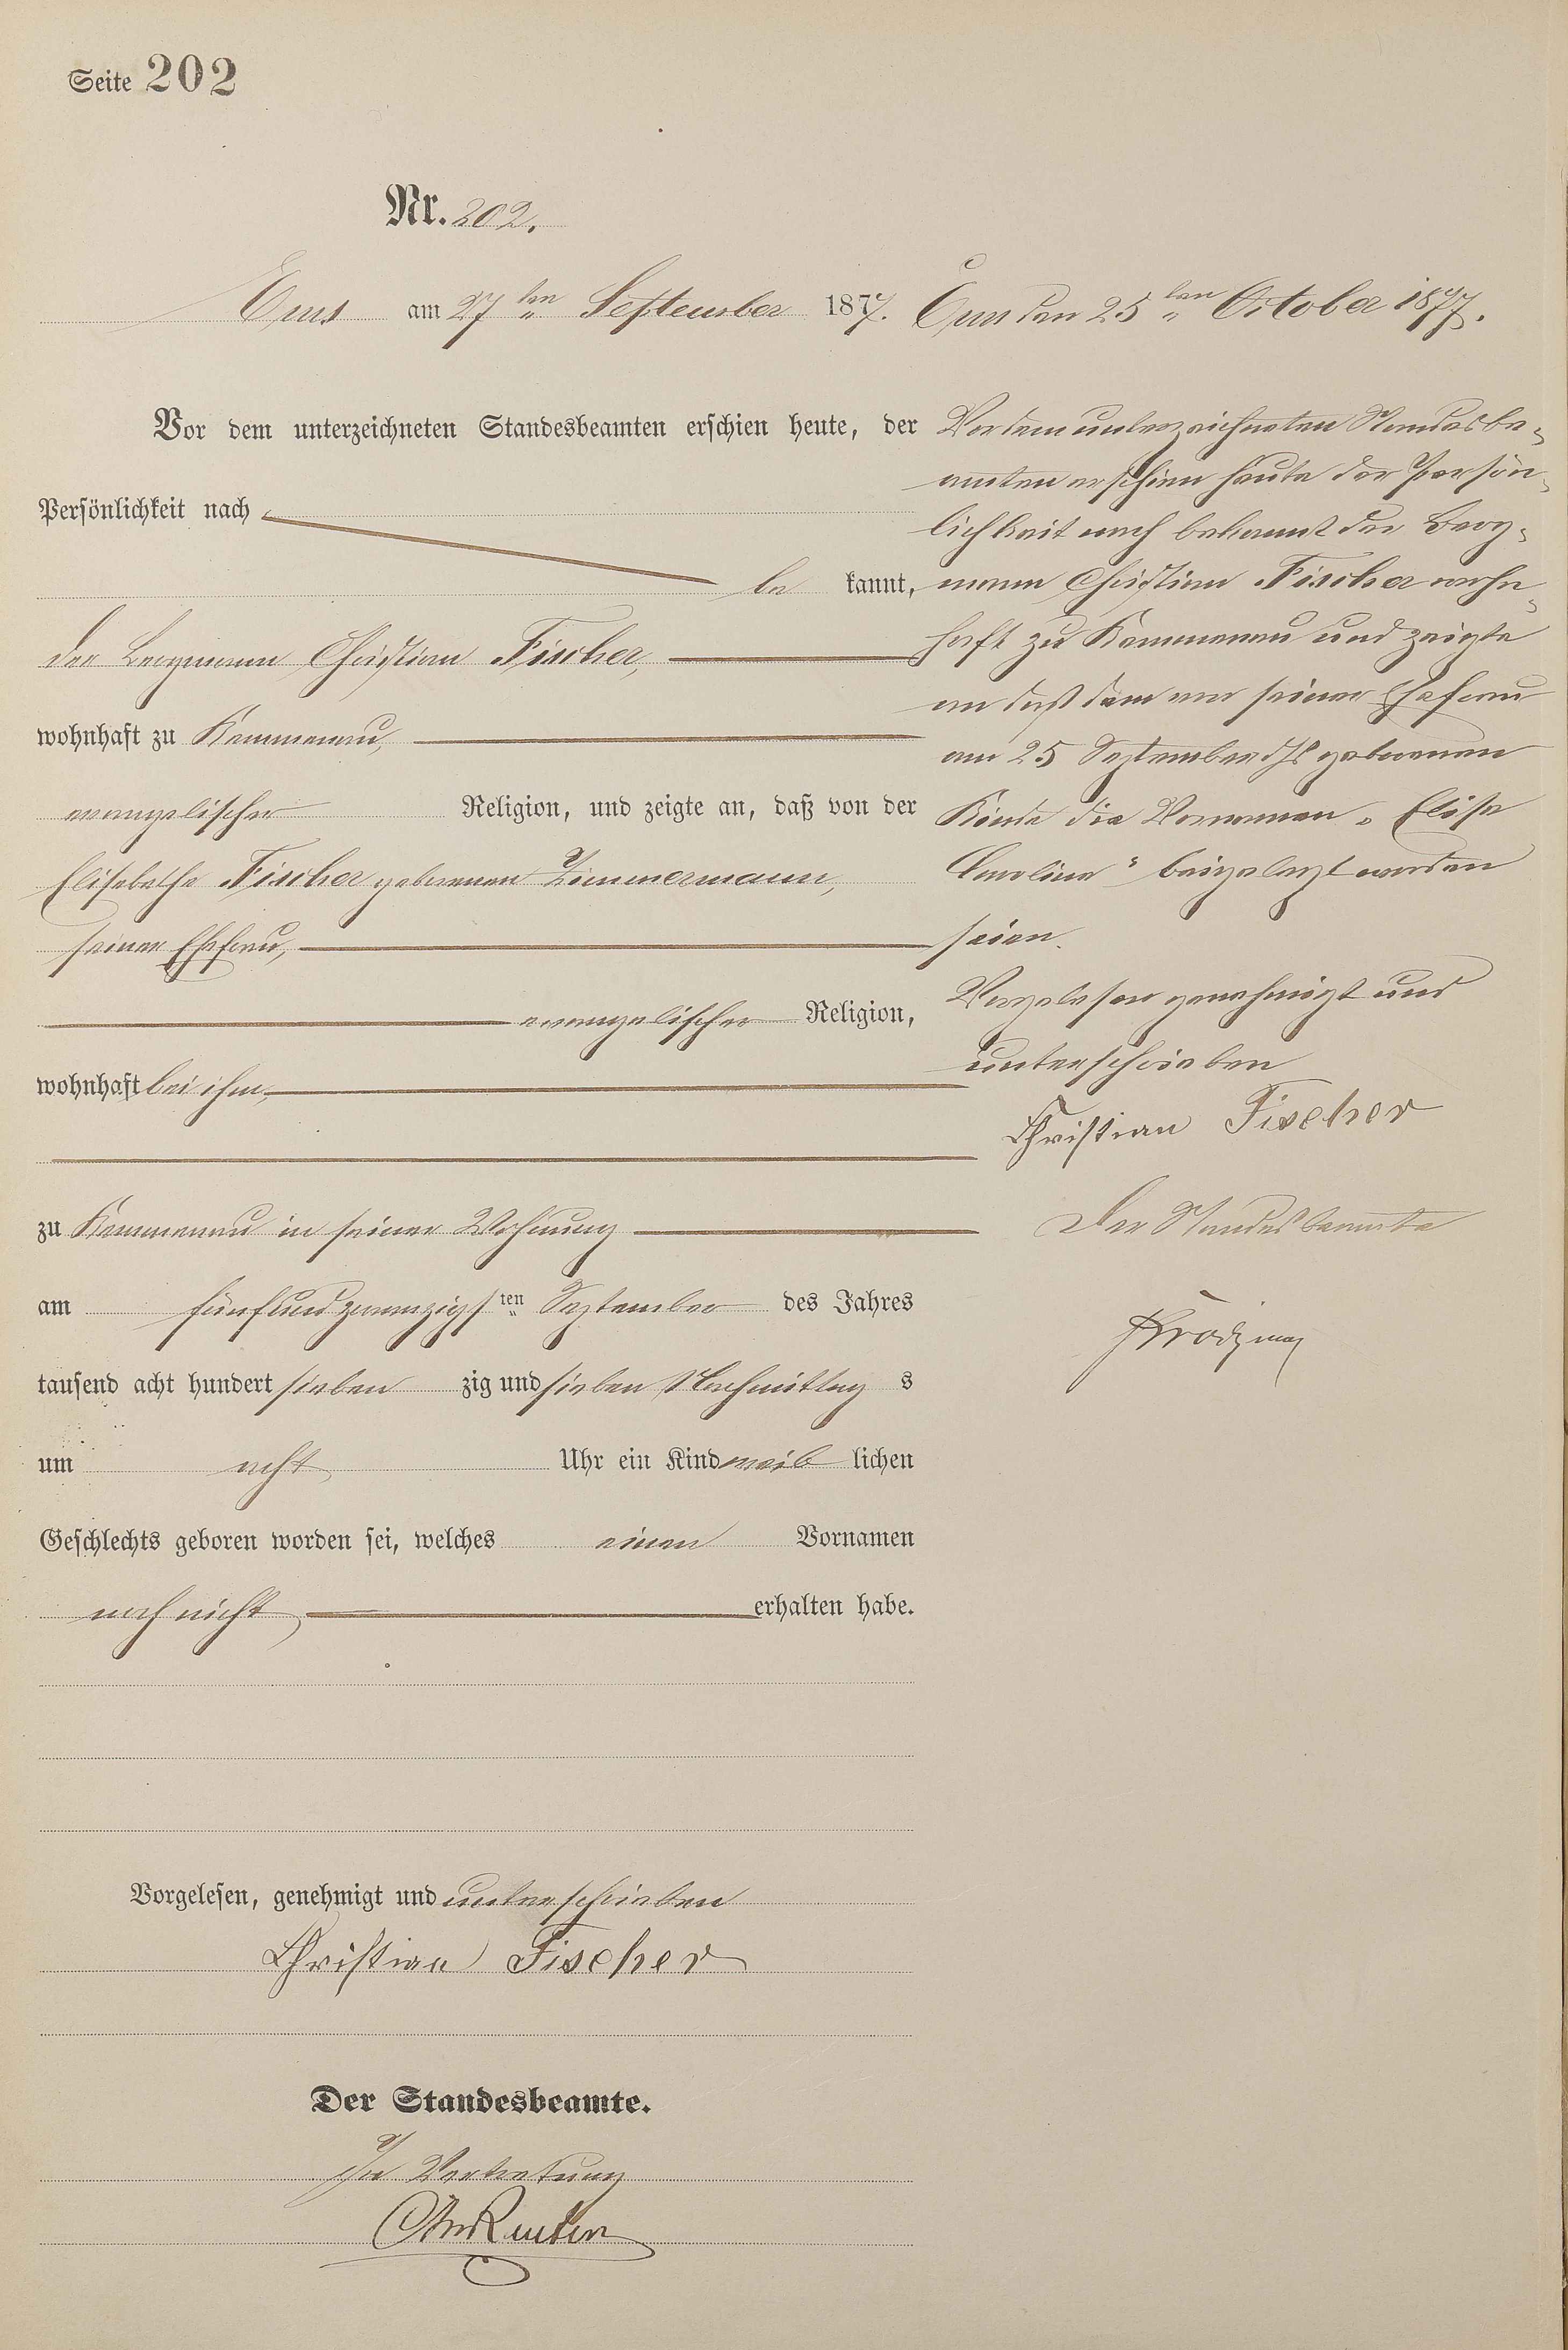 Seite 202
Nr. 202.
Ems am 27ten September 1877.
Vor dem unterzeichneten Standesbeamten erschien heute, der
Persönlichkeit nach
be kannt,
der Bergmann Christian Fischer,
wohnhaft zu Kemmenau,
evangelischer Religion, und zeigte an, daß von der
Elisabethe Fischer geborenen Zimmermann,
seiner Ehefrau,
evangelischer Religion,
wohnhaft bei ihm,
zu Kemmenau in seiner Wohnung
am fünfundzwanzigsten September des Jahres
tausend acht hundert sieben zig und sieben Nachmittag s
um acht Uhr ein Kind weib lichen
Geschlechts geboren worden sei, welches einen Vornamen
noch nicht erhalten habe.
Vorgelesen, genehmigt und unterschrieben
Christian Fischer
Der Standesbeamte.
In Vertretung
Ems den 25ten October 1877.
Vor dem unterzeichneten Standesbe-
amten erschien heute der Persön-
lichkeit nach bekannt der Berg-
mann Christian Fischer wohn-
haft zu Kemmenau und zeigte
an daß dem von seiner Ehefrau
am 25 September d Js geborenen
Kinde die Vornamen „Elise
Caroline“ beigelegt worden
seien.
Vorgelesen genehmigt und
unterschrieben
Christian Fischer
Der Standesbeamte